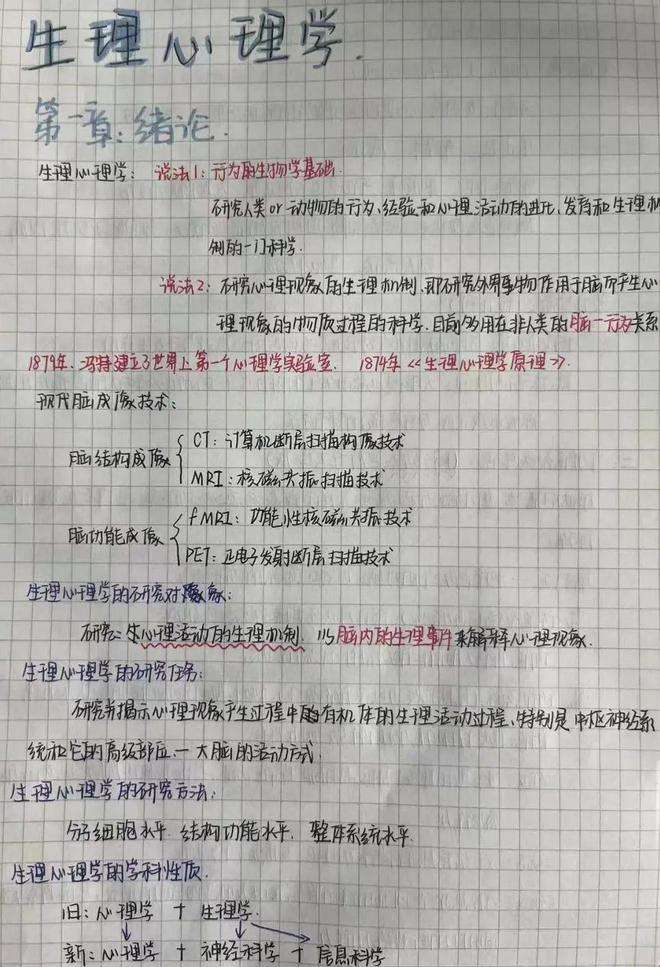 生理心理学.
第一章：绪论.
生理心理学： 说法1：行为的生物学基础.
研究人类or动物的行为、经验和心理活动的进化、发育和生理机
制的一门科学.
说法2：研究心理现象的生理机制.即研究外界事物作用于脑而产生心
理现象的物质过程的科学.目前多用在非人类的脑—行为关系
1879年、冯特建立了世界上第一个心理学实验室. 1874年<<生理心理学原理>>.
现代脑成像技术：
脑结构成像 CT：计算机断层扫描构像技术
MRI：核磁共振扫描技术
脑功能成像 fMRI：功能性核磁共振技术
PET：正电子发射断层扫描技术
生理心理学的研究对象：
研究：心理活动的生理机制. 以脑内的生理事件来解释心理现象.
生理心理学的研究任务：
研究并揭示心理现象产生过程中的有机体的生理活动过程、特别是中枢神经系
统和它的高级部位—大脑的活动方式.
生理心理学的研究方法：
分子细胞水平. 结构功能水平. 整体系统水平.
生理心理学的学科性质.
旧：心理学 + 生理学.
新：心理学 + 神经科学 + 信息科学